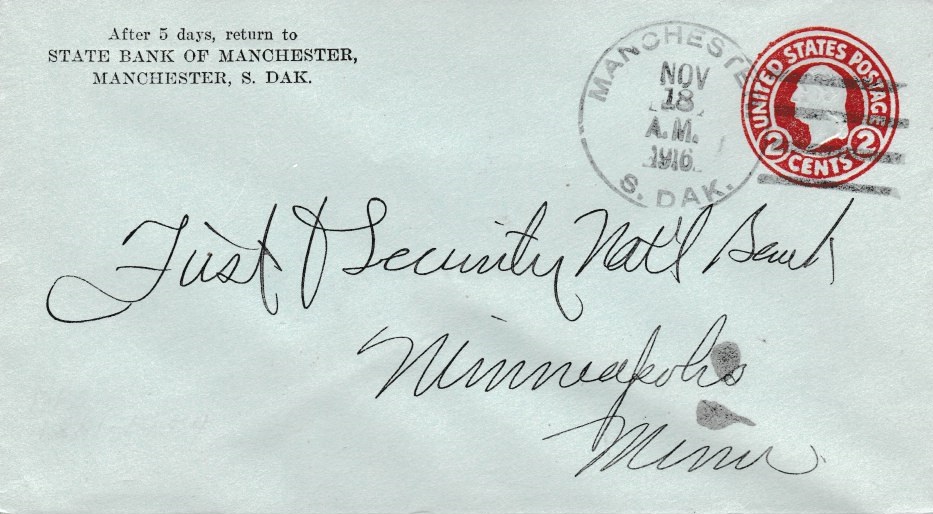 After 5 days, return to
STATE BANK OF MANCHESTER,
MANCHESTER, S. DAK.
MANCHESTE
NOV
18
A.M.
1916
S. DAK.
UNITED STATES POSTAGE
2 CENTS 2
First & Security Nat'l Bank
Minneapolis
Minn